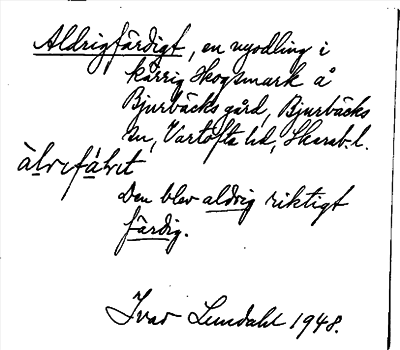 Aldrigfärdigt, en nyodling i
kärrig skogsmark å
Bjurbäcks gård, Bjurbäcks
sn, Vartofta hd, Skarab. l.
Den blev aldrig riktigt
färdig.
Ivar Lundahl 1948.